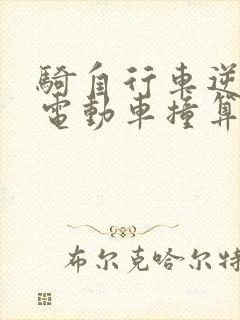 騎自行車逆
電動車撞算
布尔克哈尔特